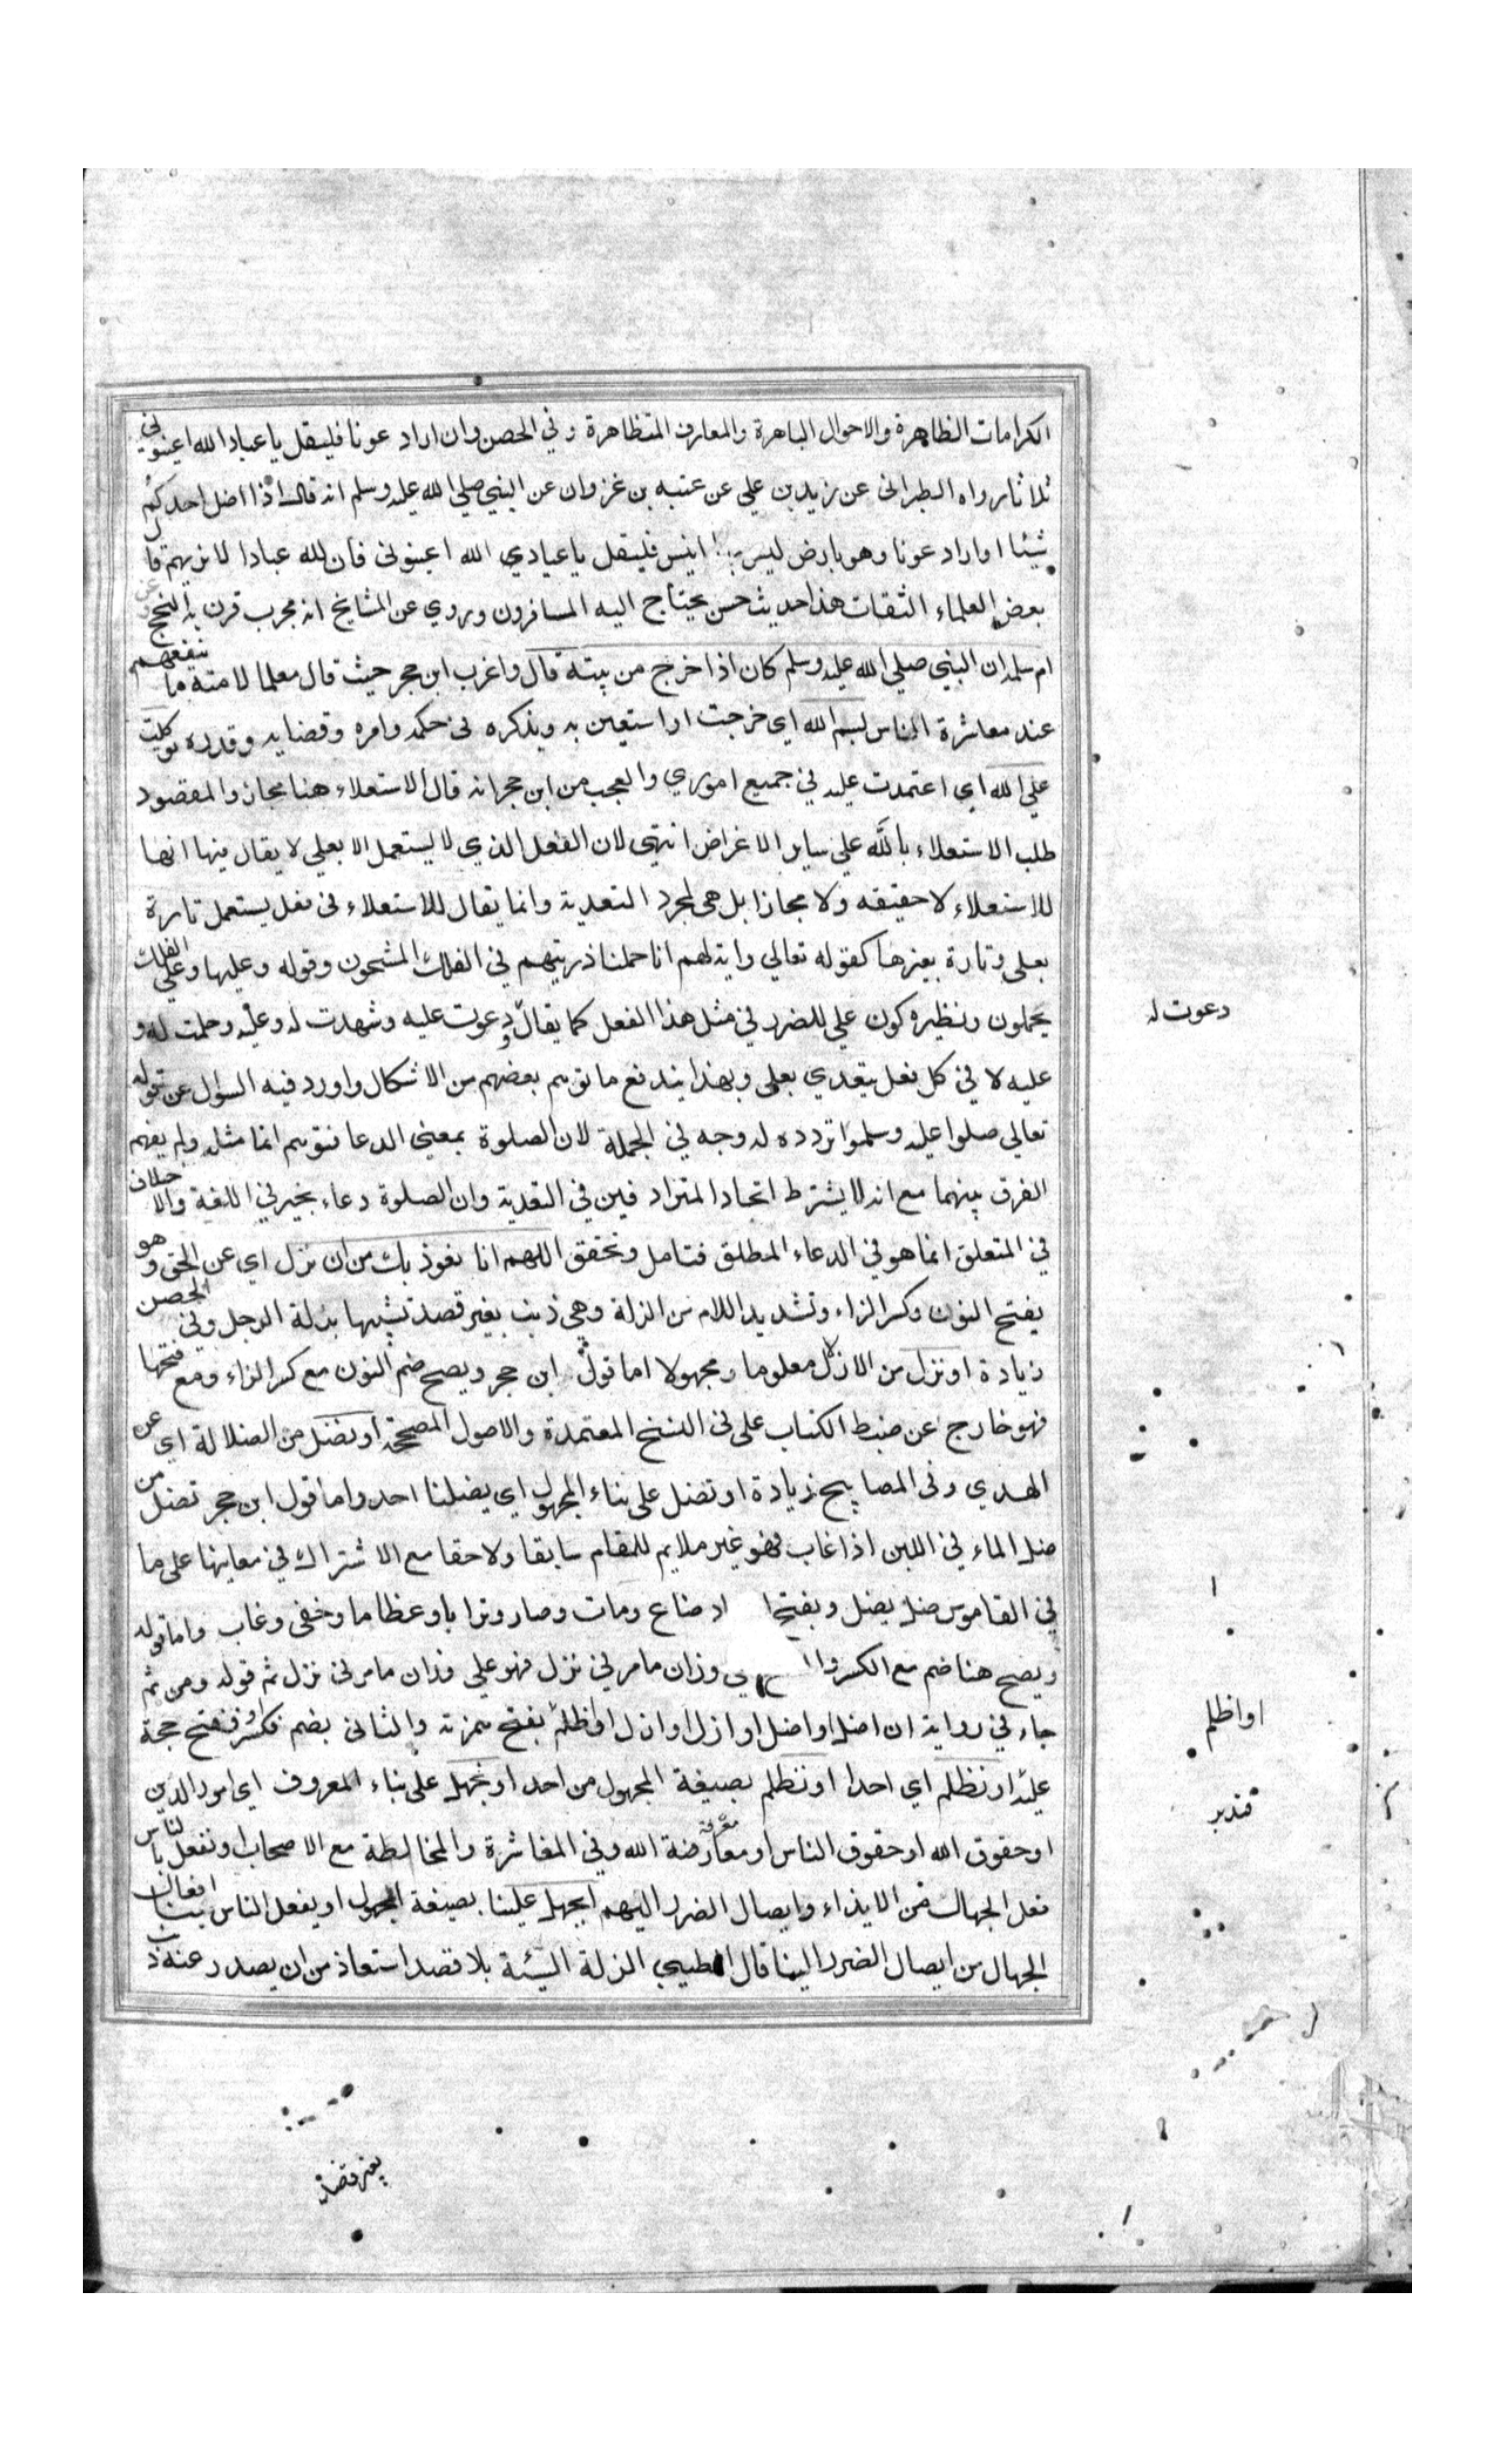 الكرامات الظاهرة والاحوال الباهرة والمعارف المتظاهرة وفي الحصن وان اراد عونا فليقل يا عباد الله اعينوني
ثلاثا رواه الطبراني عن زيد بن علي عن عتبه بن غزوان عن النبي صلي الله عليه وسلم انه قال اذا اضل احدكم
شيئا او اراد عونا وهو بارض ليس بها انيس فليقل يا عبادي الله اعينوني فان لله عبادا لا نريهم قال
بعض العلماء الثقات هذا حديث حسن يحتاج اليه المسافرون وروي عن المشايخ انه مجرب قرن به النجح وعن
ام سلمه ان النبي صلي الله عليه وسلم كان اذا خرج من بيته قال واغرب ابن حجر حيث قال معلما لامته ما ينفعهم
عند معاشرة الناس بسم الله اي خرجت او استعين به وبذكره في حكمه وامره وقضايه وقدره توكلت
علي الله اي اعتمدت عليه في جميع اموري والعجب من ابن حجر انه قال الاستعلاء هنا مجاز والمقصود
طلب الاستعلاء بالله علي ساير الاغراض انتهي لان الفعل الذي لا يستعمل الا بعلي لا يقال فيها انها
للاستعلاء لا حقيقه ولا مجازا بل هي لمجرد التعدية وانما يقال للاستعلاء في فعل يستعمل تارة
بعلي وتارة بغيرها كقوله تعالي واية لهم انا حملنا ذريتهم في الفلك المشحون وقوله وعليها وعلي الفلك
تحملون ونظيره كون علي للضرر في مثل هذا الفعل كما يقال دعوت عليه وشهدت له وعليه وحملت له و
دعوت له
عليه لا في كل فعل يتعدي بعلي وبهذا يندفع ما توهم بعضهم من الاشكال واورد فيه السوال عن قوله
تعالي صلوا عليه وسلموا تردده له وجه في الجملة لان الصلوة بمعني الدعا فتوهم انها مثله ولم يفهم
الفرق بينهما مع انه لا يشترط اتحاد المترادفين في التعدية وان الصلوة دعاء بخير في اللغة والاختلاف
في المتعلق انما هو في الدعاء المطلق فتامل وتحقق اللهم انا نعوذ بك من ان نزل اي عن الحق وهو
بفتح النون وكسر الزاء وتشديد اللام من الزلة وهي ذنب بغير قصد تشبيها بزلة الرجل وفي الحصن
زيادة او نزل من الازلال معلوما ومجهولا اما قول ابن حجر ويصح ضم النون مع كسر الزاء ومع فتحها
فهو خارج عن ضبط الكتاب علي في النسخ المعتمدة والاصول المصححة او نضل من الضلالة اي عن
الهدي وفي المصابيح زيادة او نضل علي بناء المجهول اي يضلنا احد واما قول ابن حجر نضل من
ضل الماء في اللبن اذا غاب فهو غير ملايم للمقام سابقا ولاحقا مع الاشتراك في معانيها علي ما
في القاموس ضل يضل وبفتح ضاع ومات وصار وترابا وعظاما وخفي وغاب واما قوله
ويصح هنا ضم مع الكسر وزان ما مر في نزل فهو علي وزان ما مر في نزل ثم قوله ومن ثم
جاء في رواية ان اضل او اضل او ازل او ازل او اظلم بفتح همزته والثاني بضم فكسر وفتح حجة
او اظلم
عليه او نظلم اي احدا او نظلم بصيغة المجهول من احد او نجهل علي بناء المعروف اي امور الدين
فتدبر
او حقوق الله او حقوق الناس او معارضة الله وفي المعاشرة والمخالطة مع الاصحاب او نفعل بالناس
معرفة
فعل الجهال من الايذاء وايصال الضرر اليهم او يجهل علينا بصيغة المجهول او يفعل الناس بنا افعال
الجهال من ايصال الضرر الينا قال الطيبي الزلة السيئة بلا قصد استعاذ من ان يصدر عنه ذنب
بغير قصد